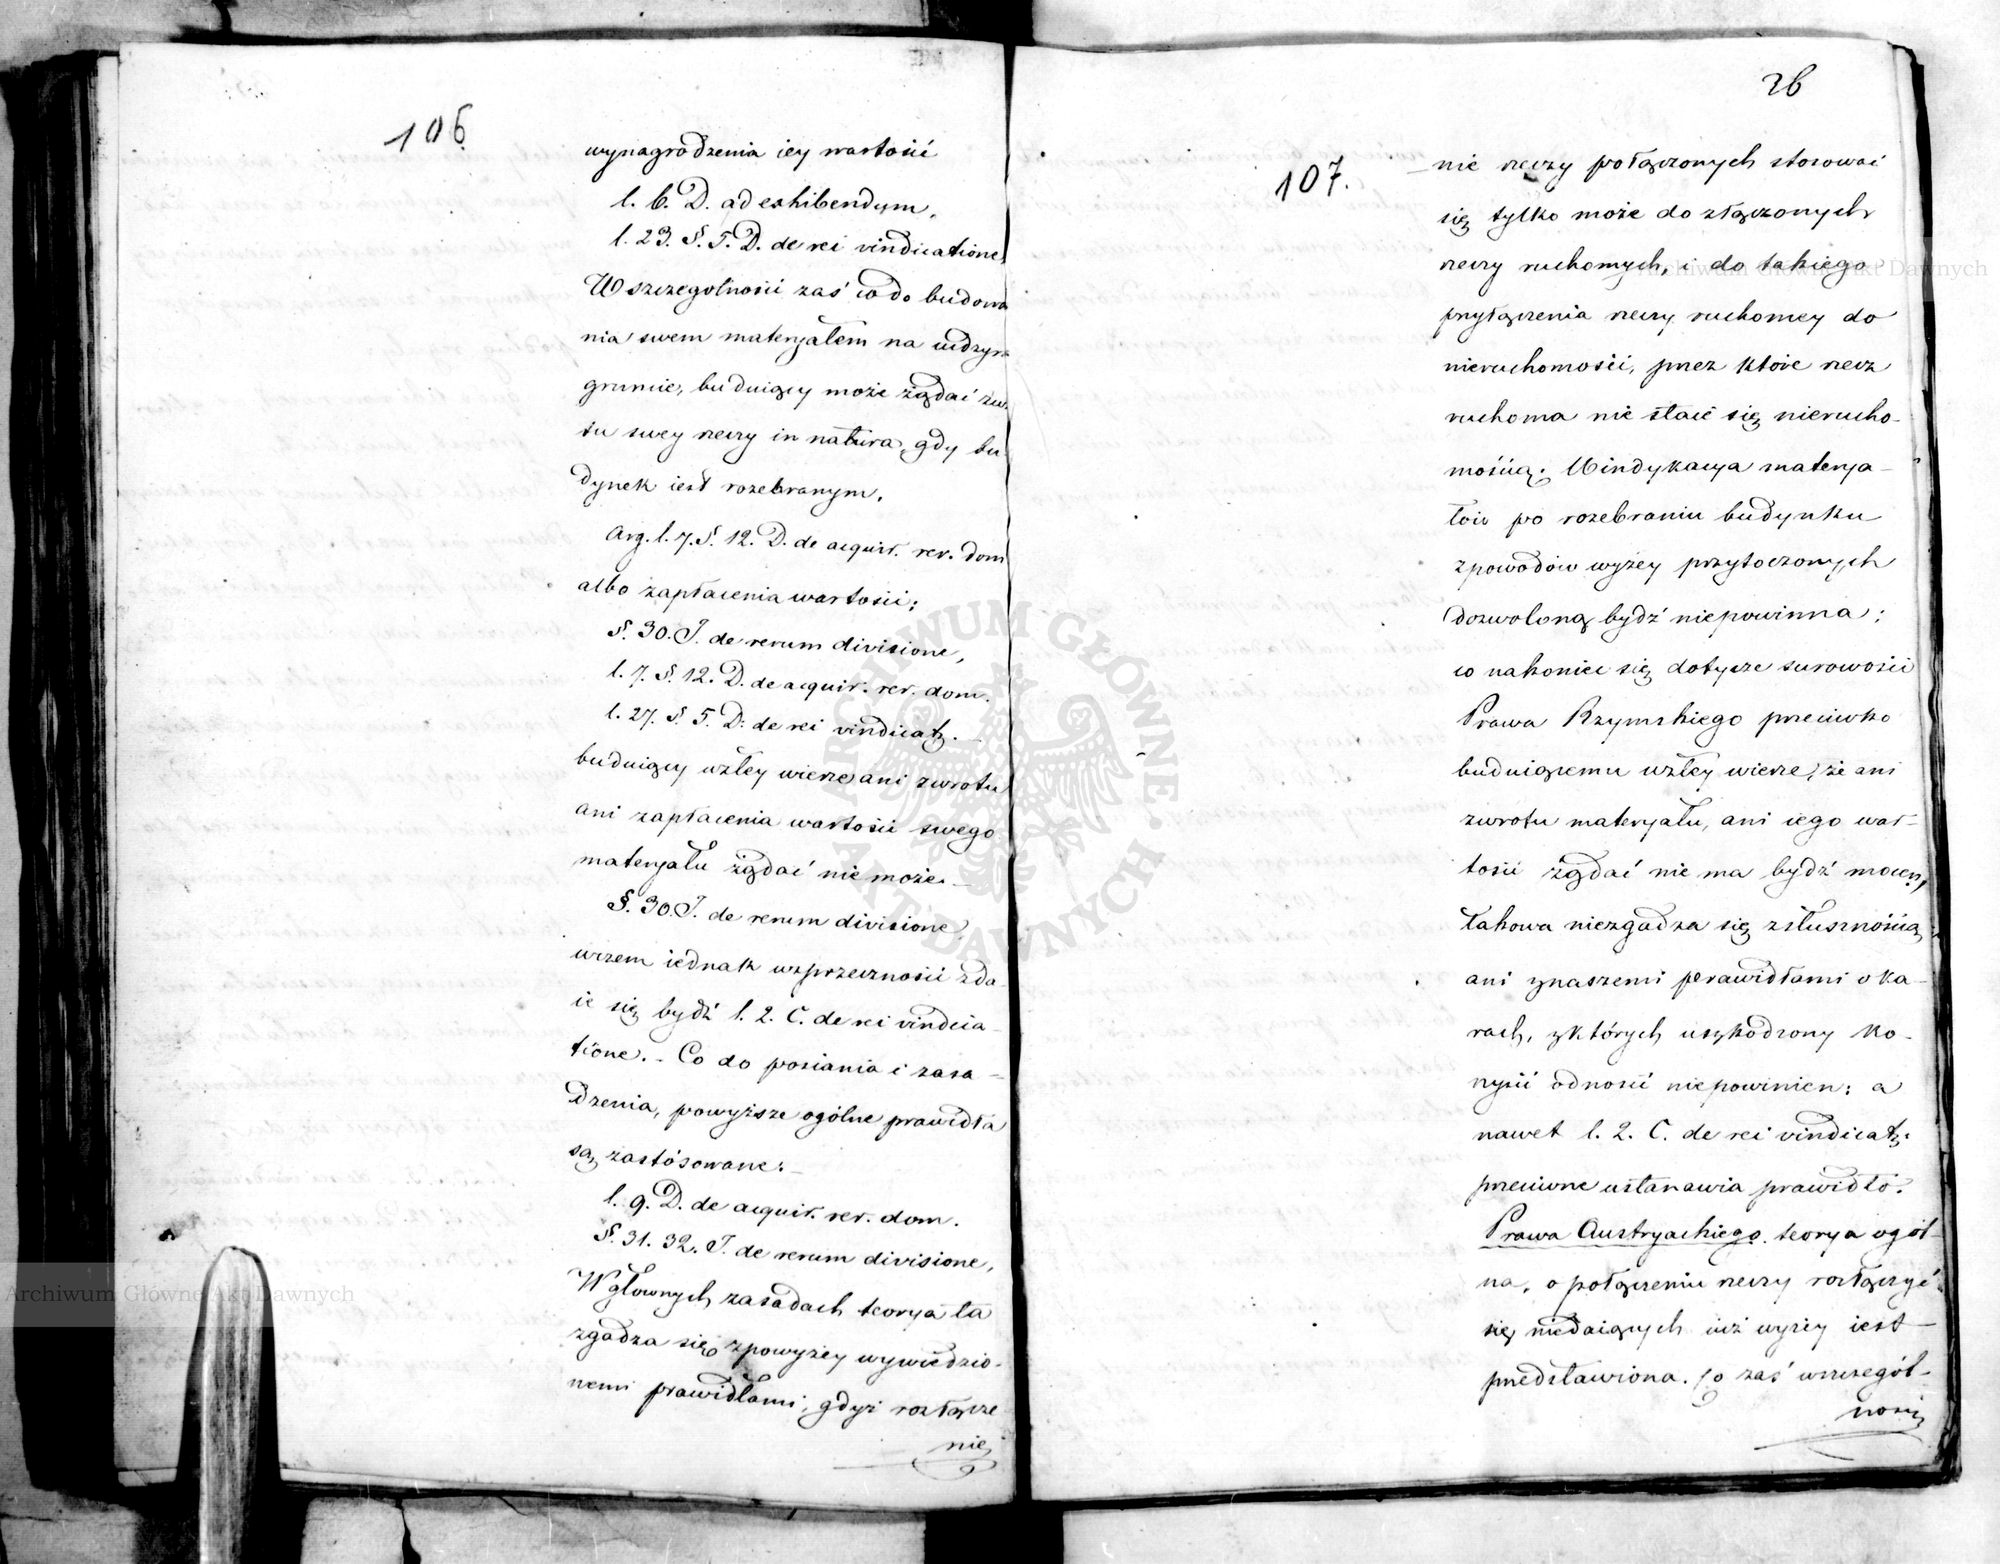 106
wynagrodzenia iey wartość
l. 6. D. ad exhibendum,
l. 23. §. 5. D. de rei vindicatione,
W szczegolności zaś co do budowa
nia swem materyałem na cudzym
gruncie, buduiący może żądać zwro
tu swey rzeczy in natura, gdy bu
dynek iest rozebranym,
Arg. l. 7. §. 12. D. de acquir. rer. dom
albo zapłacenia wartości;
§. 30. J. de rerum divisione,
l. 7. §. 12. D. de acquir. rer. dom.
l. 27. §. 5. D. de rei vindicat.
buduiący w złey wierze ani zwrotu
ani zapłacenia wartości swego
materyału żądać nie może.
§. 30. J. de rerum divisione,
w czem iednak w sprzeczności zda
ie się bydź l. 2. C. de rei vindica
tione. - Co do posiania i zasa-
dzenia, powyższe ogólne prawidła
są zastósowane:
l. 9. D. de acquir. rer. dom.
§. 31. 32. J. de rerum divisione,
W głównych zasadach teorya ta
zgadza się z powyżey wywiedzio-
nemi prawidłami, gdyż rozłącze
nie
26
107.
nie rzeczy połączonych stosować
się tylko może do złączonych
rzeczy ruchomych, i do takiego
przyłączenia rzeczy ruchomey do
nieruchomości, przez które rzecz
ruchoma nie staie się nierucho-
mością. Windykacya materya-
łów po rozebraniu budynku
z powodów wyżey przytoczonych
dozwoloną bydź niepowinna;
co nakoniec się dotycze surowości
Prawa Rzymskiego przeciwko
buduiącemu w złey wierze, że ani
zwrotu materyału, ani iego war-
tości żądać nie ma bydź mocen,
takowa niezgadza się z słusznością
ani z naszemi prawidłami o ka-
rach, z których uszkodzony ko-
rzyści odnosić niepowinien; a
nawet l. 2. C. de rei vindicat:
przeciwne ustanawia prawidło.
Prawa Austryackiego teorya ogól-
na, o połączeniu rzeczy rozłączyć
się niedaiących iuż wyżey iest
przedstawiona. Co zaś w szczegól-
ności
ARCHIWUM GŁÓWNE AKT DAWNYCH
Archiwum Główne Akt Dawnych
Archiwum Główne Akt Dawnych